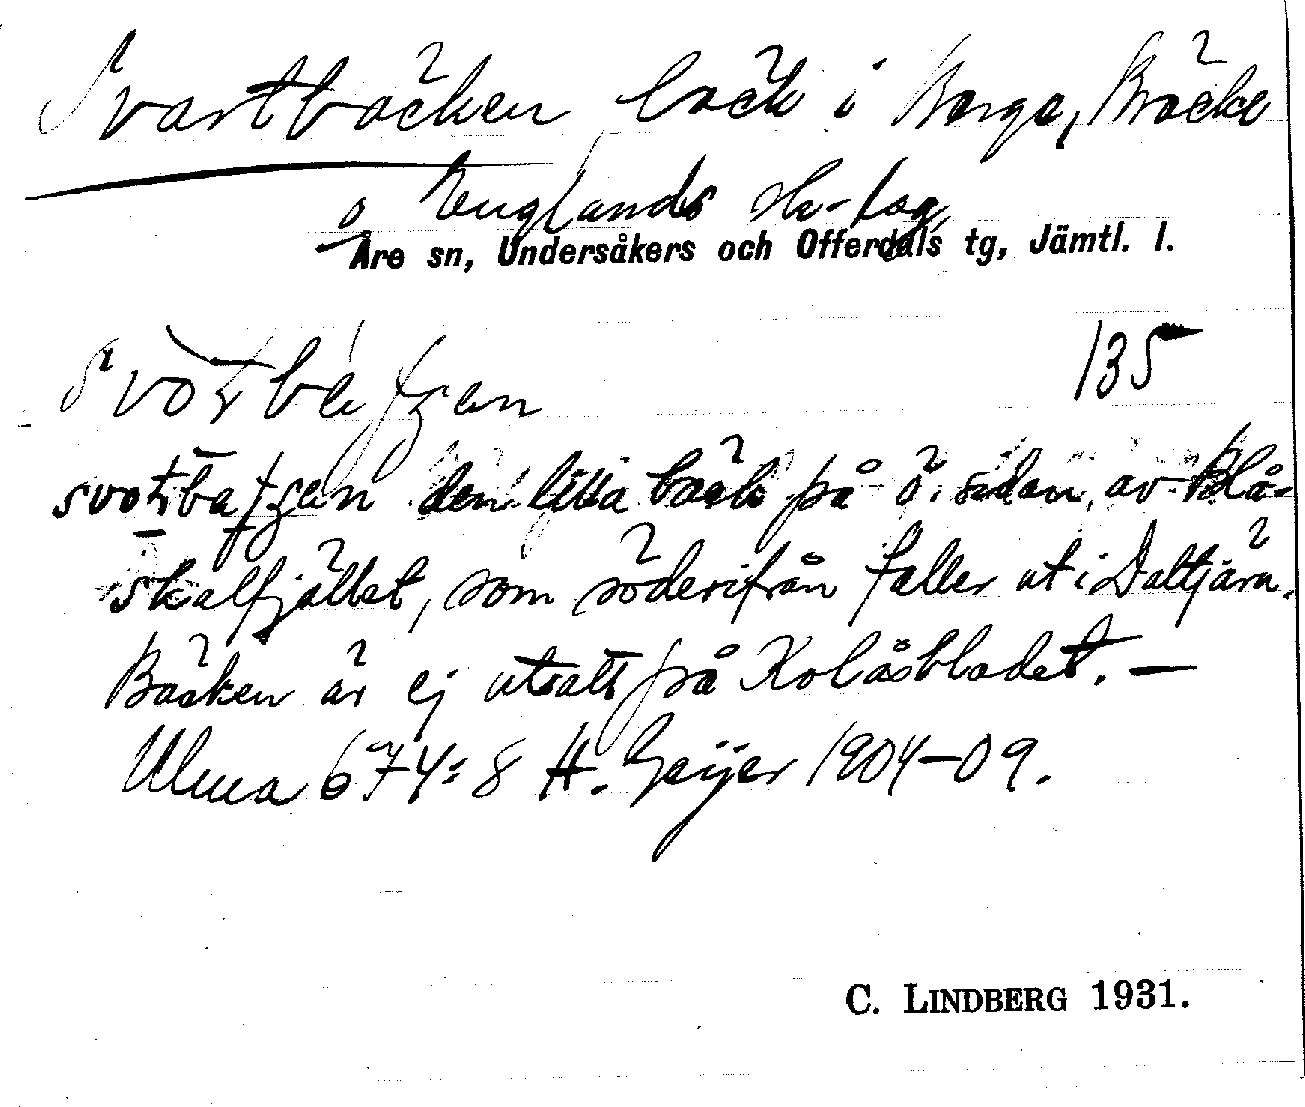 Svartbäcken bäck i Berge, Bräcke
o Englands sk-lag,
Åre sn, Undersåkers och Offerdals tg, Jämtl. l.
135
den lilla bäck på ö. sidan av Blå-
skalfjället, som söderifrån faller ut i Daltjärn.
Bäcken är ej utsatt på Kolåsbladet. —
Ulma 674:8 H. Geijer 1904-09.
C. LINDBERG 1931.